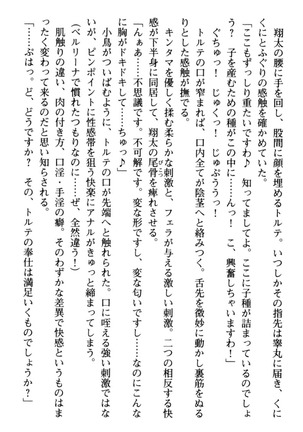 翔太の腰に手を回し、股間に顔を埋めるトルテ。いつしかその指先は睾丸に届き、くに
くにとふぐりの感触を確かめていた。
「ここもずっしり重たいですわ♪　知ってましてよ。ここに子種が詰まっているのでしょ
う？　子を産むための種がこの中に……んっ！　こ、興奮しちゃいますわ！」
ぐちゅっ！　じゅくっ！　じゅぷぅうっ！
トルテの口が窄まれば、口内全てが陰茎へと絡みつく。舌先を微妙に動かし裏筋をぬる
る感触が撫でる。
キンタマを優しく揉む柔らかな刺激と、フェラが与える激しい刺激。二つの相反する快
感が下半身に同居して、翔太の尾骨を痺れさせる。
「んぁぁ……不思議です。不可解です。変な形ですし、変な匂いですし……なのにこんな
に胸がドキドキして……ちゅっ♪」
小鳥がついばむように、トルテの口が先端へと触れられた。口に咥える強い刺激ではな
いが、ピンポイントに性感帯を狙う快楽にアナルがきゅっと締まってしまう。
（ベルリーナで慣れたつもりなのに……ぜ、全然違う！）
肌触りの違い、肉の付き方、口淫・手淫の癖。そのわずかな差異で快感というものはま
ったく変わって来るのだと思い知らされた。
「……ぷはっ。ど、どうですか？　その、トルテの奉仕は満足いくものでしょうか？」